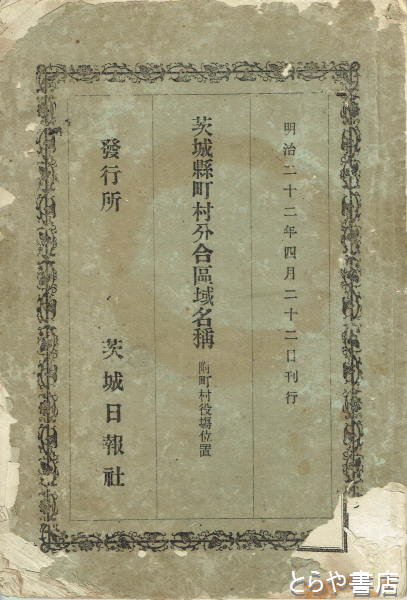 明治二十二年四月二十二日刊行
茨城縣町村分合區域名稱 附町村役塲位置
發行所 茨城日報社
とらや書店